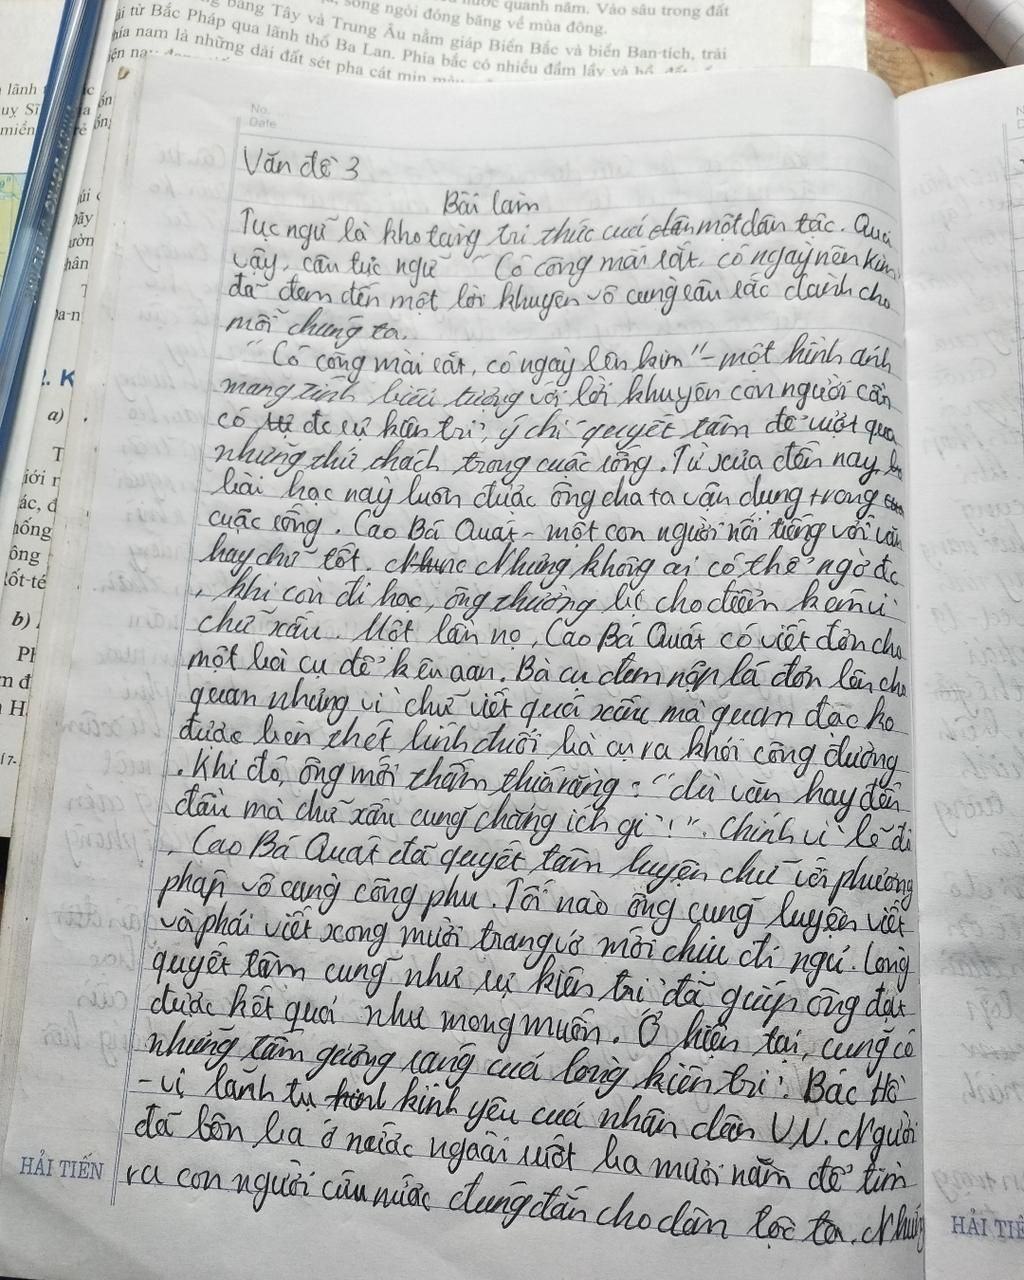 sông ngòi đóng băng về mùa đông.
nước quanh năm. Vào sâu trong đất
băng Tây và Trung Âu nằm giáp Biển Bắc và biển Ban-tích, trải
ài từ Bắc Pháp qua lãnh thổ Ba Lan. Phía bắc có nhiều đầm lầy và hồ,
hía nam là những dải đất sét pha cát mịn
lãnh
uỵ Sĩ
miền
No.
Date
Văn đề 3
Bài làm
Tục ngữ là kho tàng tri thức cuả dân một dân tộc. Quả
vậy, câu tục ngữ " Có công mài sắt, có ngày nên kim
đã đem đến một lời khuyên vô cùng sâu sắc dành cho
mỗi chúng ta.
"Có công mài sắt, có ngày lên kim" - một hình ảnh
mang tính biểu tượng với lời khuyên con người cần
có sự đc sự kiên trì, ý chí quyết tâm để vượt qua
những thử thách trong cuộc sống. Từ xưa đến nay,
bài học này luôn được ông cha ta vận dụng trong
cuộc sống. Cao Bá Quát - một con người nổi tiếng với văn
hay chữ tốt. Nhưng không ai có thể ngờ đc
, khi còn đi học, ông thường bị cho điểm kém vì
chữ xấu. Một lần nọ, Cao Bá Quát có viết đơn cho
một bà cụ để kêu oan. Bà cụ đem nộp lá đơn lên cho
quan nhưng vì chữ viết quá xấu mà quan đọc ko
được liền thét lính đuổi bà cụ ra khỏi công đường
. Khi đó, ông mới thấm thía rằng: "dù văn hay đến
đâu mà chữ xấu cũng chẳng ích gì!". Chính vì lẽ đó
, Cao Bá Quát đã quyết tâm luyện chữ với phương
pháp vô cùng công phu. Tối nào ông cũng luyện viết
và phải viết xong mười trang vở mới chịu đi ngủ. Lòng
quyết tâm cũng như sự kiên trì đã giúp ông đạt
được kết quả như mong muốn. Ở hiện tại, cũng có
những tấm gương sáng cuả lòng kiên trì: Bác Hồ
- vị lãnh tụ kính yêu cuả nhân dân VN. Người
đã bôn ba ở nước ngoài suốt ba mươi năm để tìm
ra con người cứu nước đúng đắn cho dân tộc ta. Nhưng
HẢI TIẾN
HẢI TIẾ